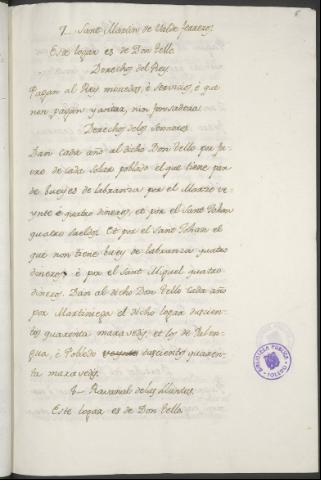 6
7_ Sant Martin de Valde ferreros
Este logar es de Don Tello
Derechos del Rey
Pagan al Rey monedas, è servicios, è que
non pagan yantar, nin fonsadera
Derechos delos Sennores
Dan cada año al dicho Don Tello por fu-
ero de cada Solar poblado el que tiene par
de bueyes de labranza por el Marzo ve-
ynte è quatro dineros, et por el Sant Johan
quatro sueldos. Et por el Sant Joham el
que non tiene buey de labranza quatro
dineros, è por el Sant Miguel quatro
dineros. Dan al dicho Don Tello cada año
por Martiniega el dicho logar dscien-
tos quarenta maravedis, et los de Palen-
qua, è Poblado veynte duscientos quaren-
ta maravedis.
8_ Ravanal delas Llantas
Este logar es de Don Tello
BIBLIOTECA PUBLICA
TOLEDO